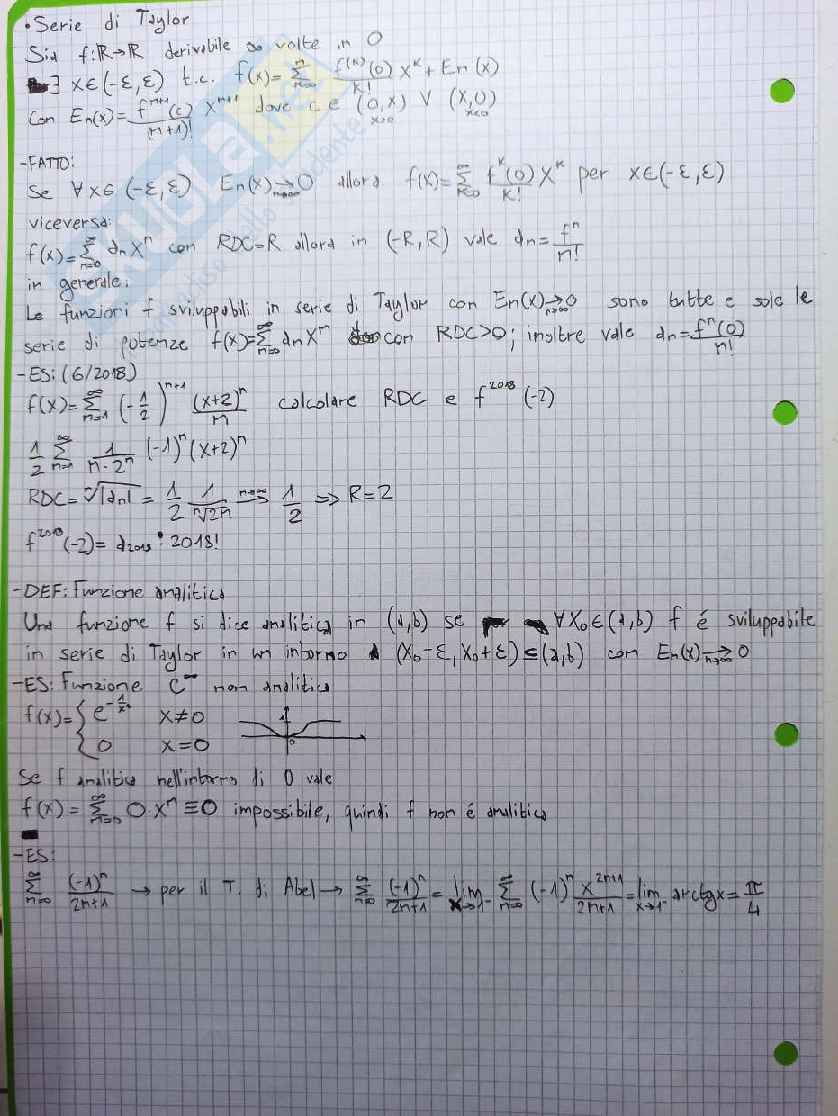 • Serie di Taylor
Sia f:ℝ→ℝ derivabile ∞ volte in 0
∃ x∈(-ε,ε) t.c. f(x)=∑_{k=0}^{n} f^{(k)}(0)/k! x^k + En(x)
con En(x)= f^{n+1}(c)/(n+1)! x^{n+1} dove c∈ (0,x) x>0 ∨ (x,0) x<0
-FATTO:
Se ∀x∈(-ε,ε) En(x) →_{n→∞} 0 allora f(x)=∑_{k=0}^{∞} f^k(0)/k! x^k per x∈(-ε,ε)
viceversa:
f(x)=∑_{n=0}^{∞} an x^n con RDC=R allora in (-R,R) vale an= f^n/n!
in generale:
Le funzioni f sviluppabili in serie di Taylor con En(x) →_{n→∞} 0 sono tutte e sole le
serie di potenze f(x)=∑_{n=0}^{∞} an x^n con RDC>0; inoltre vale an= f^n(0)/n!
-ES: (6/2018)
f(x)=∑_{n=1}^{∞} (-1/2)^{n+1} (x+2)^n/n calcolare RDC e f^{2018}(-2)
1/2 ∑_{n=1}^{∞} 1/(n·2^n) (-1)^n (x+2)^n
RDC= ⁿ√|an| = 1/2 1/ⁿ√2n →^{n→∞} 1/2 => R=2
f^{2018}(-2)= a_{2018} · 2018!
-DEF: Funzione analitica
Una funzione f si dice analitica in (a,b) se ∀x₀∈(a,b) f é sviluppabile
in serie di Taylor in un intorno (x₀-ε, x₀+ε)⊆(a,b) con En(x) →_{n→∞} 0
-ES: Funzione C^∞ non analitica
f(x)= { e^{-1/x²} x≠0
0 x=0
0
Se f analitica nell'intorno di 0 vale
f(x)=∑_{n=0}^{∞} 0·x^n ≡0 impossibile, quindi f non é analitica
-ES:
∑_{n=0}^{∞} (-1)^n/(2n+1) → per il T. di Abel → ∑_{n=0}^{∞} (-1)^n/(2n+1) = lim_{x→1⁻} ∑_{n=0}^{∞} (-1)^n x^{2n+1}/(2n+1) = lim_{x→1⁻} arctgx = π/4